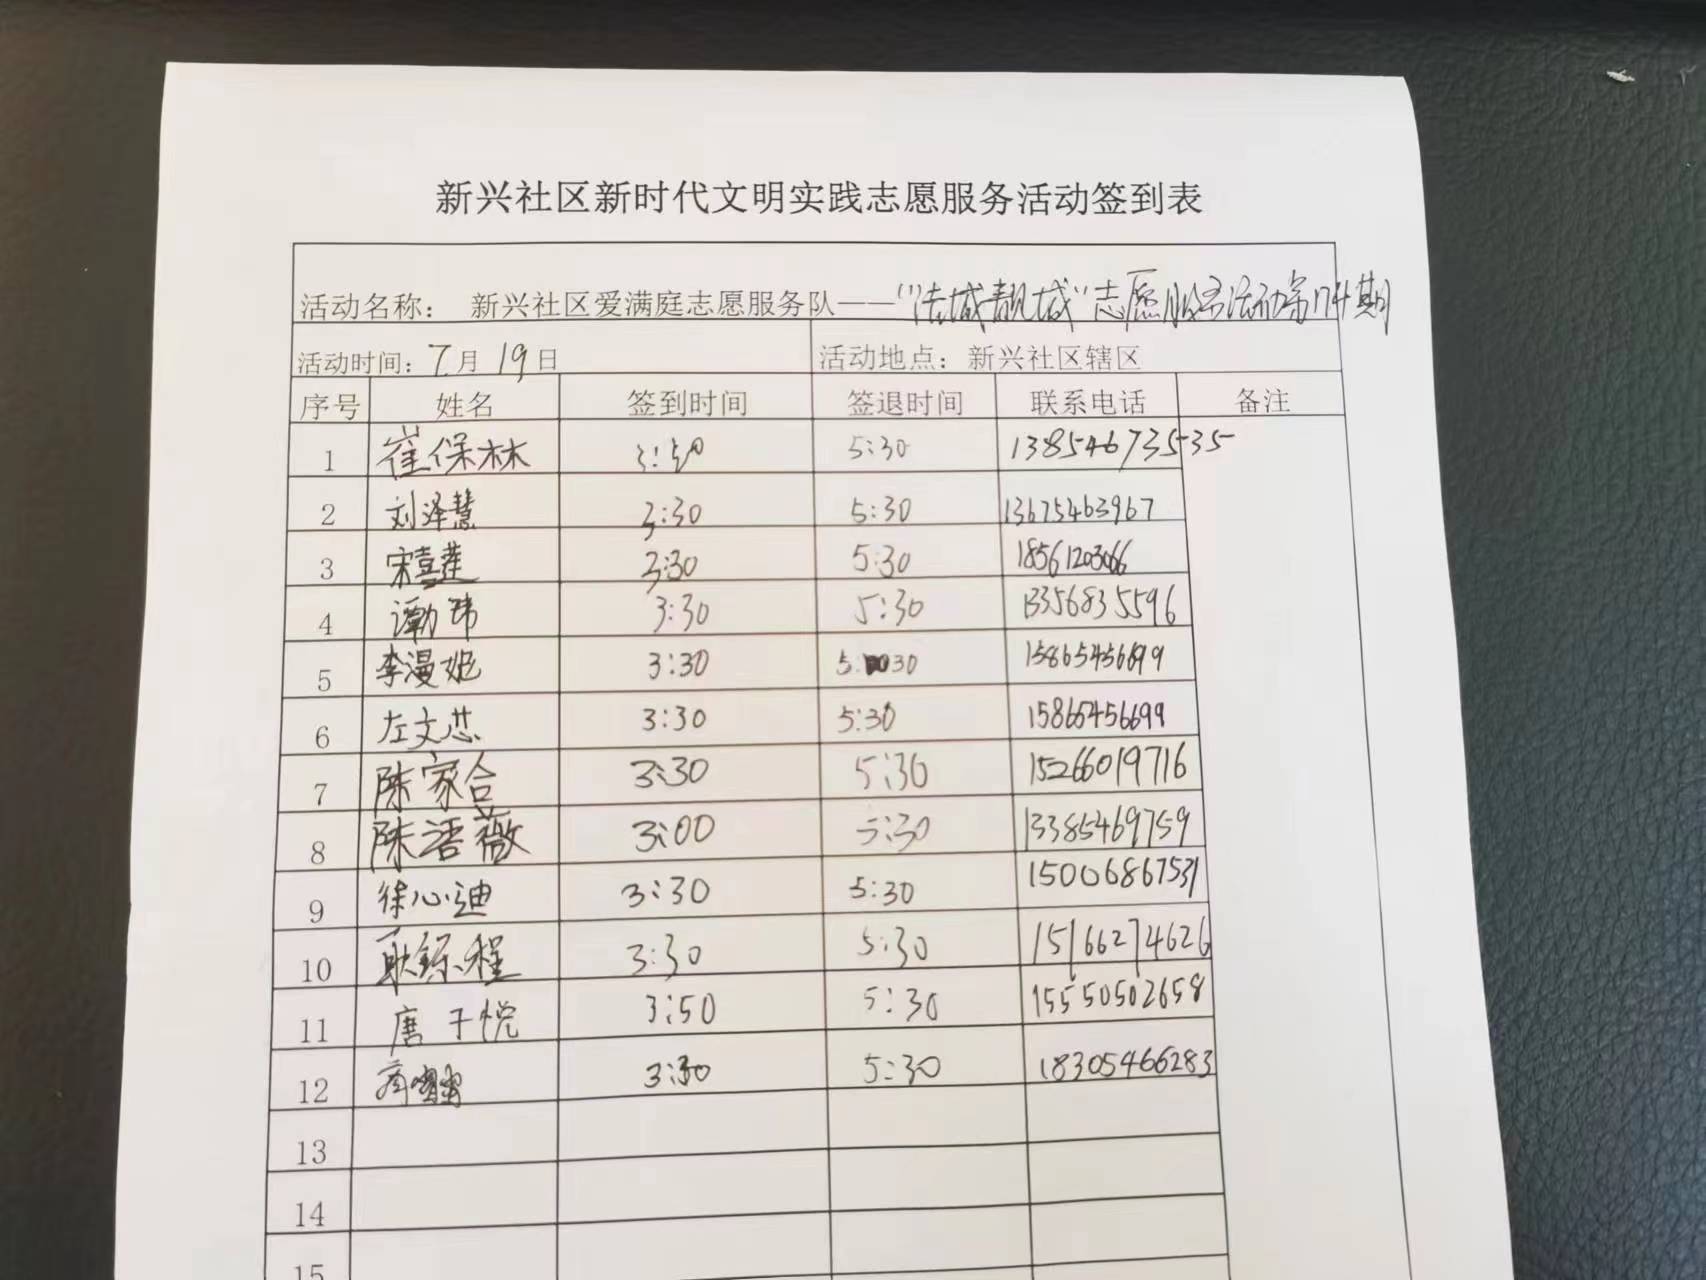 新兴社区新时代文明实践志愿服务活动签到表
活动名称： 新兴社区爱满庭志愿服务队——“洁城靓城”志愿服务活动第174期
活动时间：7月19日 活动地点：新兴社区辖区
序号 姓名 签到时间 签退时间 联系电话 备注
1 崔保林 3:30 5:30 13854673535
2 刘泽慧 3:30 5:30 13675463967
3 宋喜莲 3:30 5:30 18561203066
4 谭勤玮 3:30 5:30 13356835596
5 李漫妮 3:30 5:30 15865456699
6 左文芯 3:30 5:30 15865456699
7 陈家合 3:30 5:30 15266019716
8 陈语薇 3:00 5:30 13385469759
9 徐心迪 3:30 5:30 15006867531
10 耿 程 3:30 5:30 15166274626
11 唐子悦 3:50 5:30 15550502658
12 3:30 5:30 18305466283
13
14
15